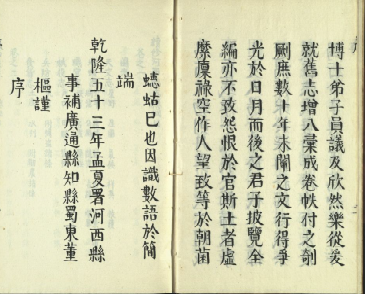 博士弟子員議及欣然樂從爰
就舊志增入彙成卷帙付之剞
劂庶數十年未闡之文行得爭
光於日月而後之君子披覽全
編亦不致怨恨於官斯土者虛
縻廩祿空作人望致等於朝菌
蟪蛄已也因識數語於簡
端
乾隆五十三年孟夏署河西縣
事補廣通縣知縣蜀東董
樞謹
序